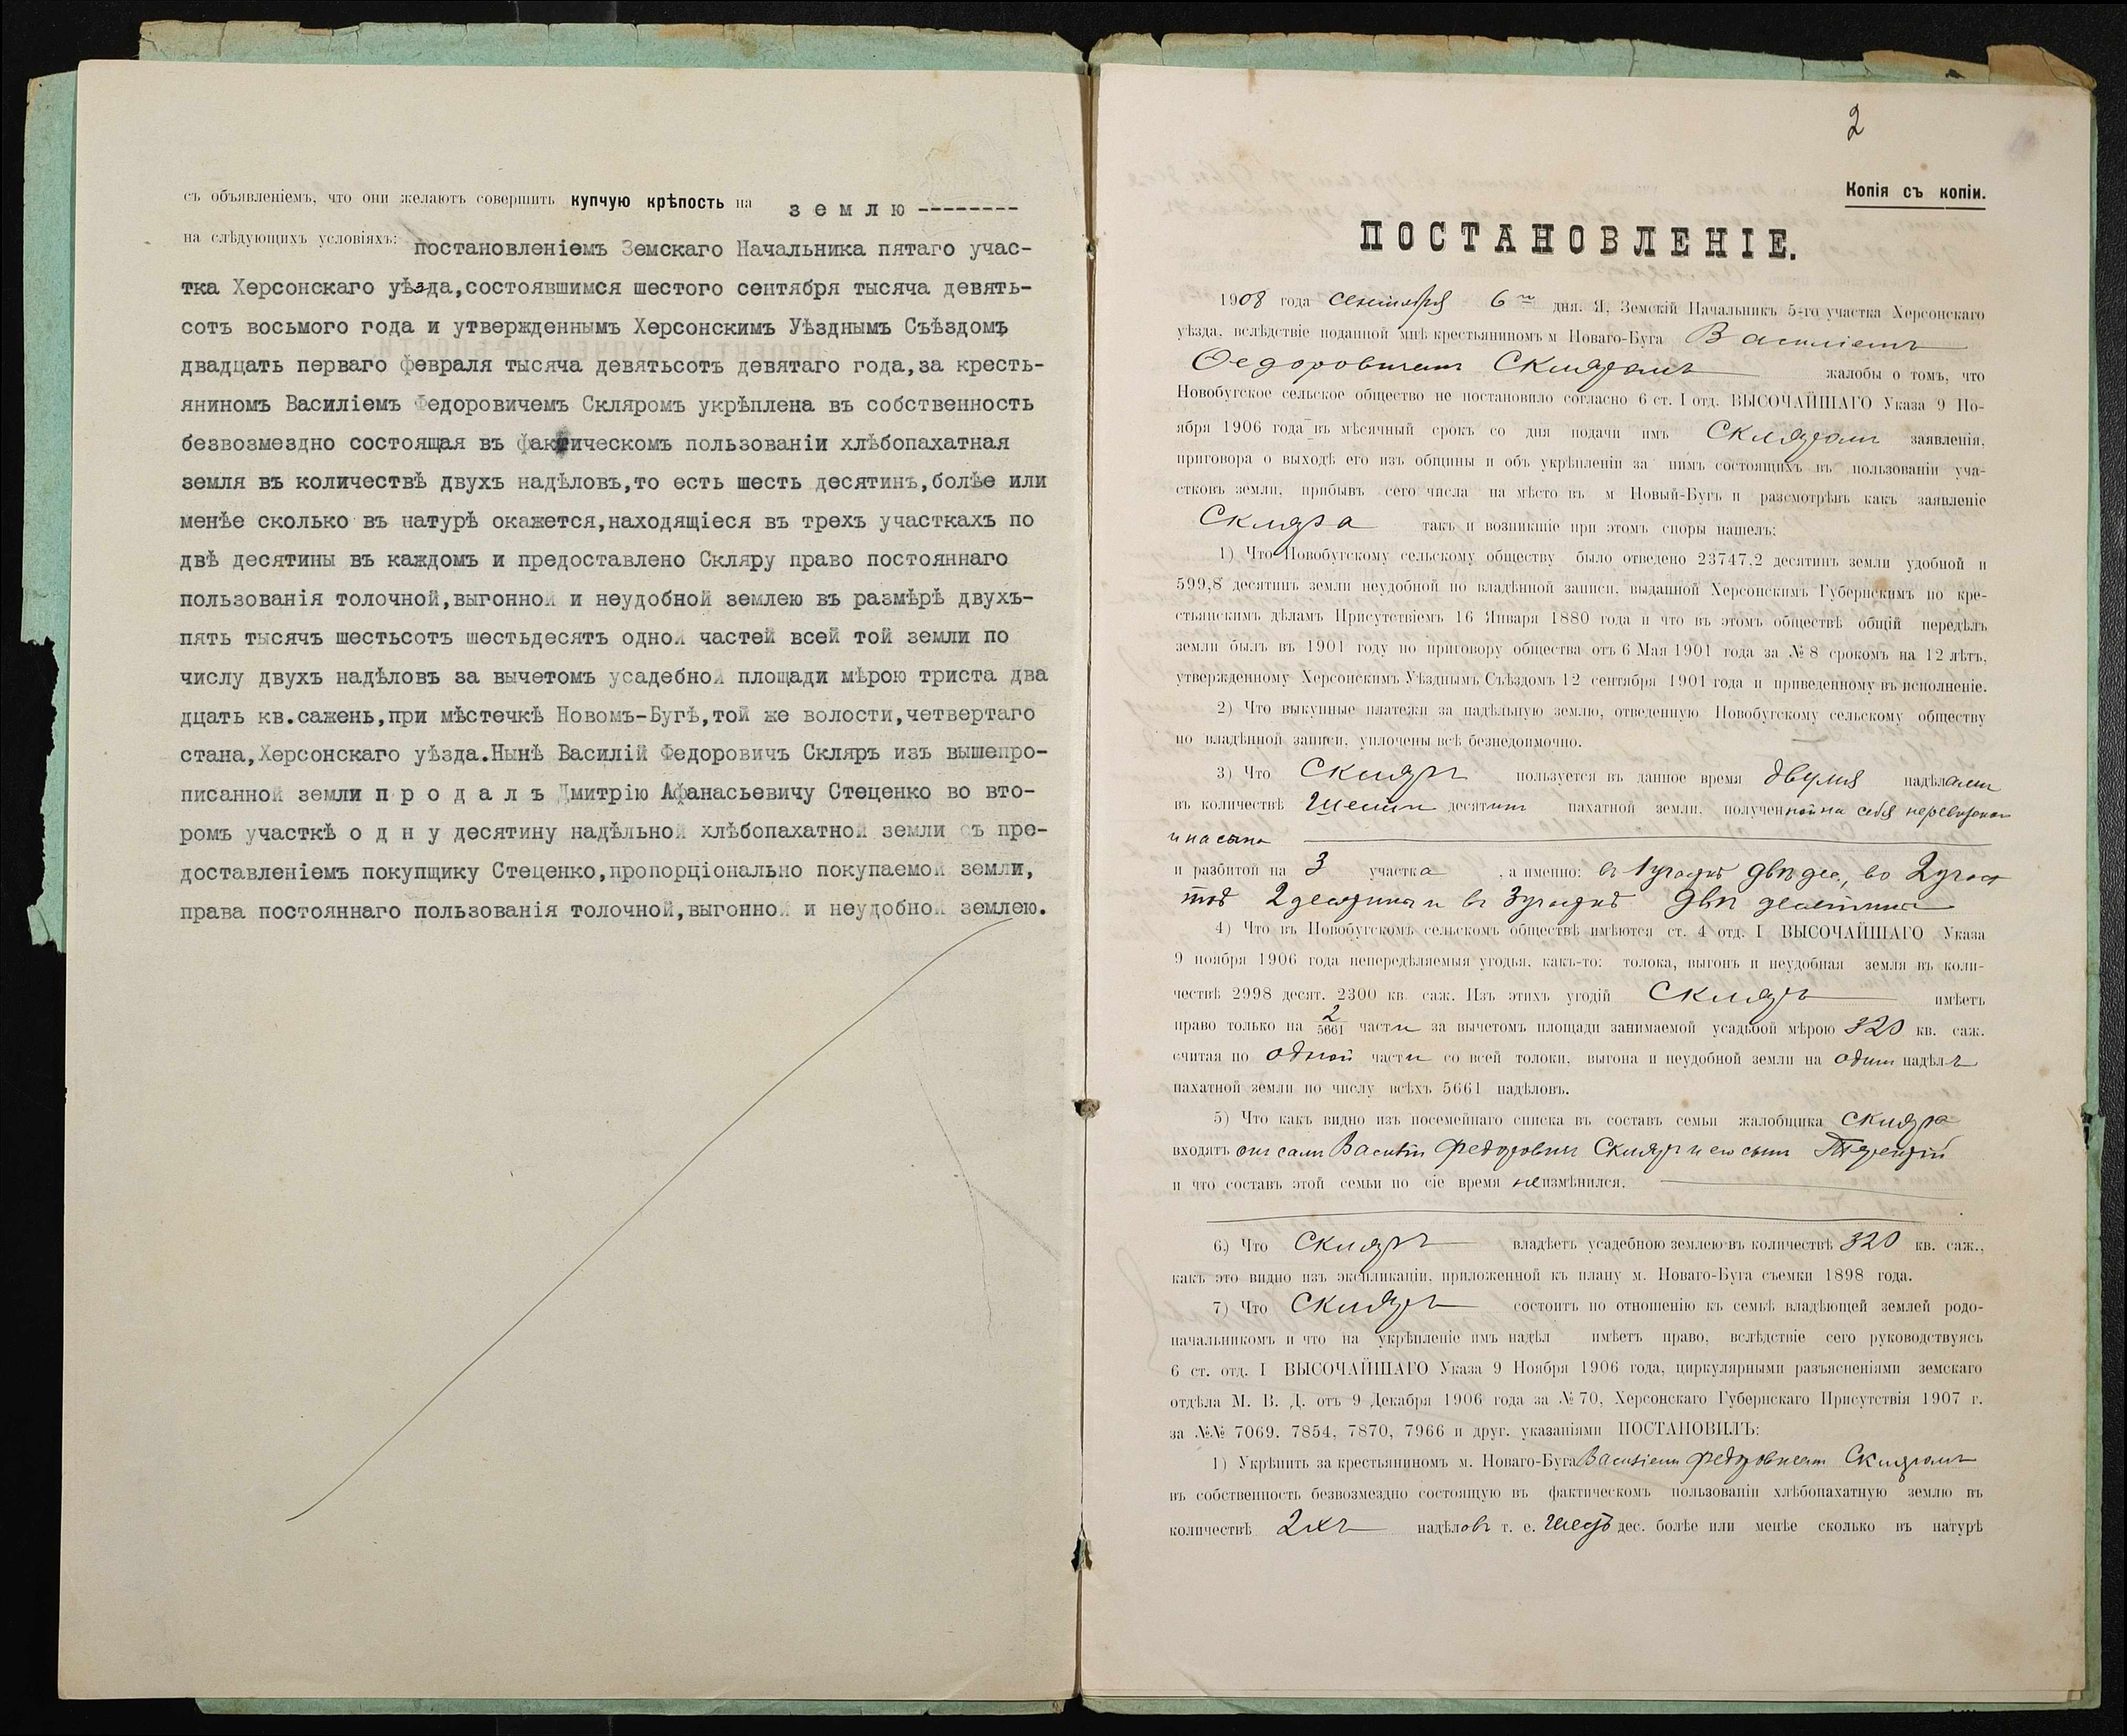 съ объявленіемъ, что они желаютъ совершить купчую крѣпость на з е м л ю --------
на слѣдующихъ условіяхъ: постановленіемъ Земскаго Начальника пятаго учас-
тка Херсонскаго уѣзда,состоявшимся шестого сентября тысяча девять-
сотъ восьмого года и утвержденнымъ Херсонскимъ Уѣзднымъ Съѣздомъ
двадцать перваго февраля тысяча девятьсотъ девятаго года,за кресть-
яниномъ Василіемъ Федоровичемъ Скляромъ укрѣплена въ собственность
безвозмездно состоящая въ фактическомъ пользованіи хлѣбопахатная
земля въ количествѣ двухъ надѣловъ,то есть шесть десятинъ,болѣе или
менѣе сколько въ натурѣ окажется,находящіеся въ трехъ участкахъ по
двѣ десятины въ каждомъ и предоставлено Скляру право постояннаго
пользованія толочной,выгонной и неудобной землею въ размѣрѣ двухъ-
пять тысячъ шестьсотъ шестьдесятъ одной частей всей той земли по
числу двухъ надѣловъ за вычетомъ усадебной площади мѣрою триста два
дцать кв.сажень,при мѣстечкѣ Новомъ-Бугѣ,той же волости,четвертаго
стана,Херсонскаго уѣзда.Нынѣ Василій Федоровичъ Скляръ изъ вышепро-
писанной земли п р о д а л ъ Дмитрію Афанасьевичу Стеценко во вто-
ромъ участкѣ о д н у десятину надѣльной хлѣбопахатной земли съ пре-
доставленіемъ покупщику Стеценко,пропорціонально покупаемой земли,
права постояннаго пользованія толочной,выгонной и неудобной землею.
2
Копія съ копіи.
ПОСТАНОВЛЕНІЕ.
1908 года сентября 6го дня. Я, Земскій Начальникъ 5-го участка Херсонскаго
уѣзда, вслѣдствіе поданной мнѣ крестьяниномъ м Новаго-Буга Василіемъ
Ѳедоровичемъ Скляромъ жалобы о томъ, что
Новобугское сельское общество не постановило согласно 6 ст. I отд. ВЫСОЧАЙШАГО Указа 9 Но-
ября 1906 года въ мѣсячный срокъ со дня подачи имъ Скляромъ заявленія,
приговора о выходѣ его изъ общины и объ укрѣпленіи за нимъ состоящихъ въ пользованіи уча-
стковъ земли, прибывъ сего числа на мѣсто въ м Новый-Бугъ и разсмотрѣвъ какъ заявленіе
Скляра такъ и возникшіе при этомъ споры нашелъ:
1) Что Новобугскому сельскому обществу было отведено 23747,2 десятинъ земли удобной и
599,8 десятинъ земли неудобной по владѣнной записи, выданной Херсонскимъ Губернскимъ по кре-
стьянскимъ дѣламъ Присутствіемъ 16 Января 1880 года и что въ этомъ обществѣ общій передѣлъ
земли былъ въ 1901 году по приговору общества отъ 6 Мая 1901 года за № 8 срокомъ на 12 лѣтъ,
утвержденному Херсонскимъ Уѣзднымъ Съѣздомъ 12 сентября 1901 года и приведенному въ исполненіе.
2) Что выкупные платежи за надѣльную землю, отведенную Новобугскому сельскому обществу
по владѣнной записи, уплочены всѣ безнедоимочно.
3) Что Скляръ пользуется въ данное время двумя надѣлами
въ количествѣ шести десятинъ пахатной земли, полученной на себя
и на сына
и разбитой на 3 участка , а именно: въ 1 участкѣ двѣ дес., во 2 учас
ткѣ 2 десятины и въ 3 участкѣ двѣ десятины
4) Что въ Новобугскомъ сельскомъ обществѣ имѣются ст. 4 отд. I ВЫСОЧАЙШАГО Указа
9 ноября 1906 года непередѣляемыя угодья, какъ-то: толока, выгонъ и неудобная земля въ коли-
чествѣ 2998 десят. 2300 кв саж. Изъ этихъ угодій Скляръ имѣетъ
право только на 2/5661 части за вычетомъ площади занимаемой усадьбой мѣрою 320 кв. саж.
считая по одной части со всей толоки, выгона и неудобной земли на одинъ надѣлъ
пахатной земли по числу всѣхъ 5661 надѣловъ.
5) Что какъ видно изъ посемейнаго списка въ составъ семьи жалобщика Скляра
входятъ онъ самъ Василій Федоровичъ Скляръ и его сынъ Терентій
и что составъ этой семьи по сіе время не измѣнился.
6.) Что Скляръ владѣетъ усадебною землею въ количествѣ 320 кв. саж.,
какъ это видно изъ экспликаціи, приложенной къ плану м. Новаго-Буга съемки 1898 года.
7) Что Скляръ состоитъ по отношенію къ семьѣ владѣющей землей родо-
начальникомъ и что на укрѣпленіе имъ надѣл имѣетъ право, вслѣдствіе сего руководствуясь
6 ст. отд. I ВЫСОЧАЙШАГО Указа 9 Ноября 1906 года, циркулярными разъясненіями земскаго
отдѣла М. В. Д. отъ 9 Декабря 1906 года за № 70, Херсонскаго Губернскаго Присутствія 1907 г.
за №№ 7069. 7854, 7870, 7966 и друг. указаніями ПОСТАНОВИЛЪ:
1) Укрѣпить за крестьяниномъ м. Новаго-Буга Василіемъ Федоровичемъ Скляромъ
въ собственность безвозмездно состоящую въ фактическомъ пользованіи хлѣбопахатную землю въ
количествѣ 2хъ надѣловъ т. е. шесть дес. болѣе или менѣе сколько въ натурѣ